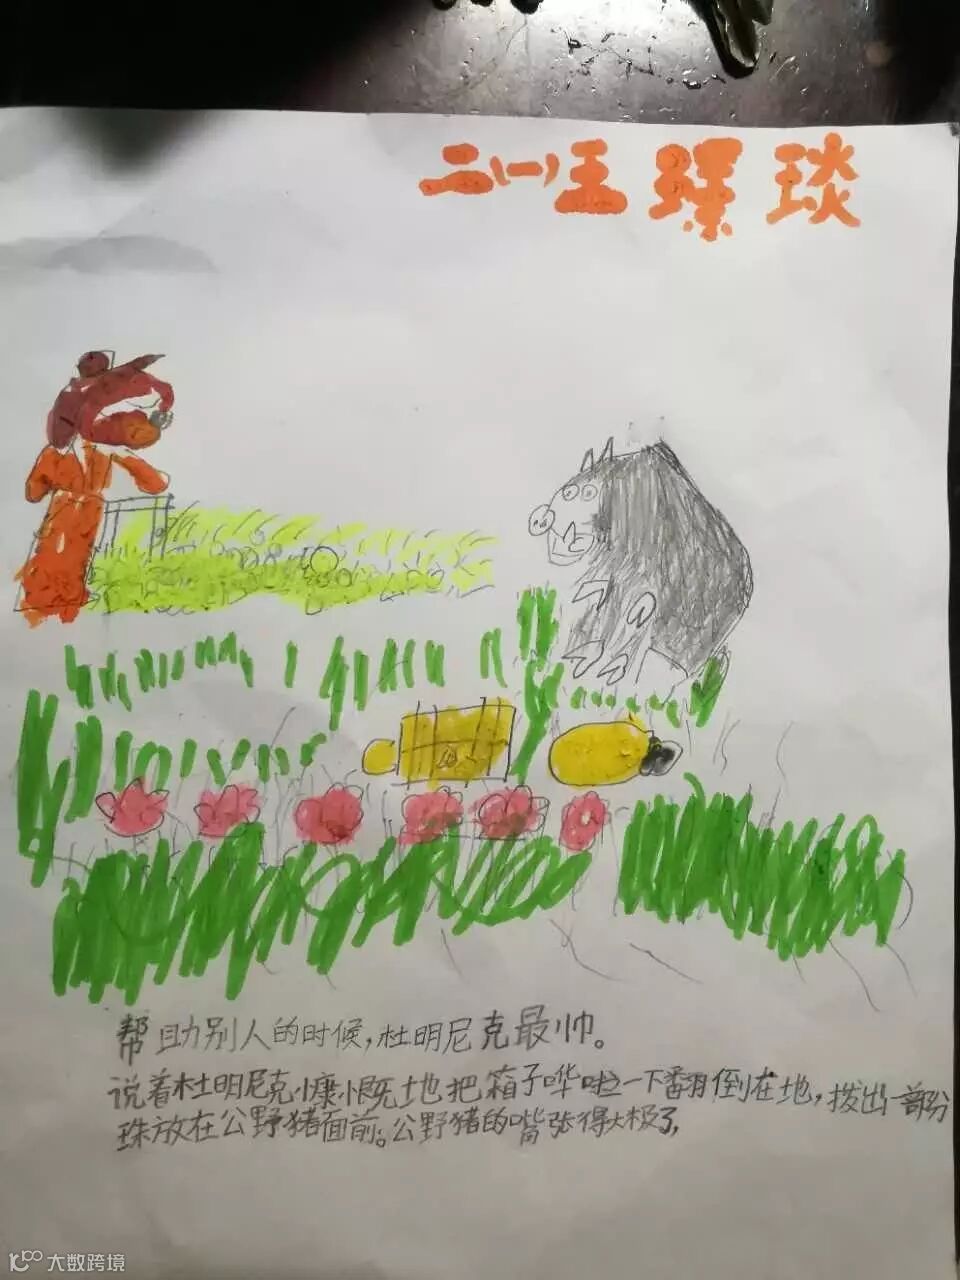 二(一)王璟琰
帮助别人的时候,杜明尼克最帅。
说着杜明尼克慷慨地把箱子哗啦一下翻倒在地,拨出一部份
珠放在公野猪面前。公野猪的嘴张得大极了,
大数跨境